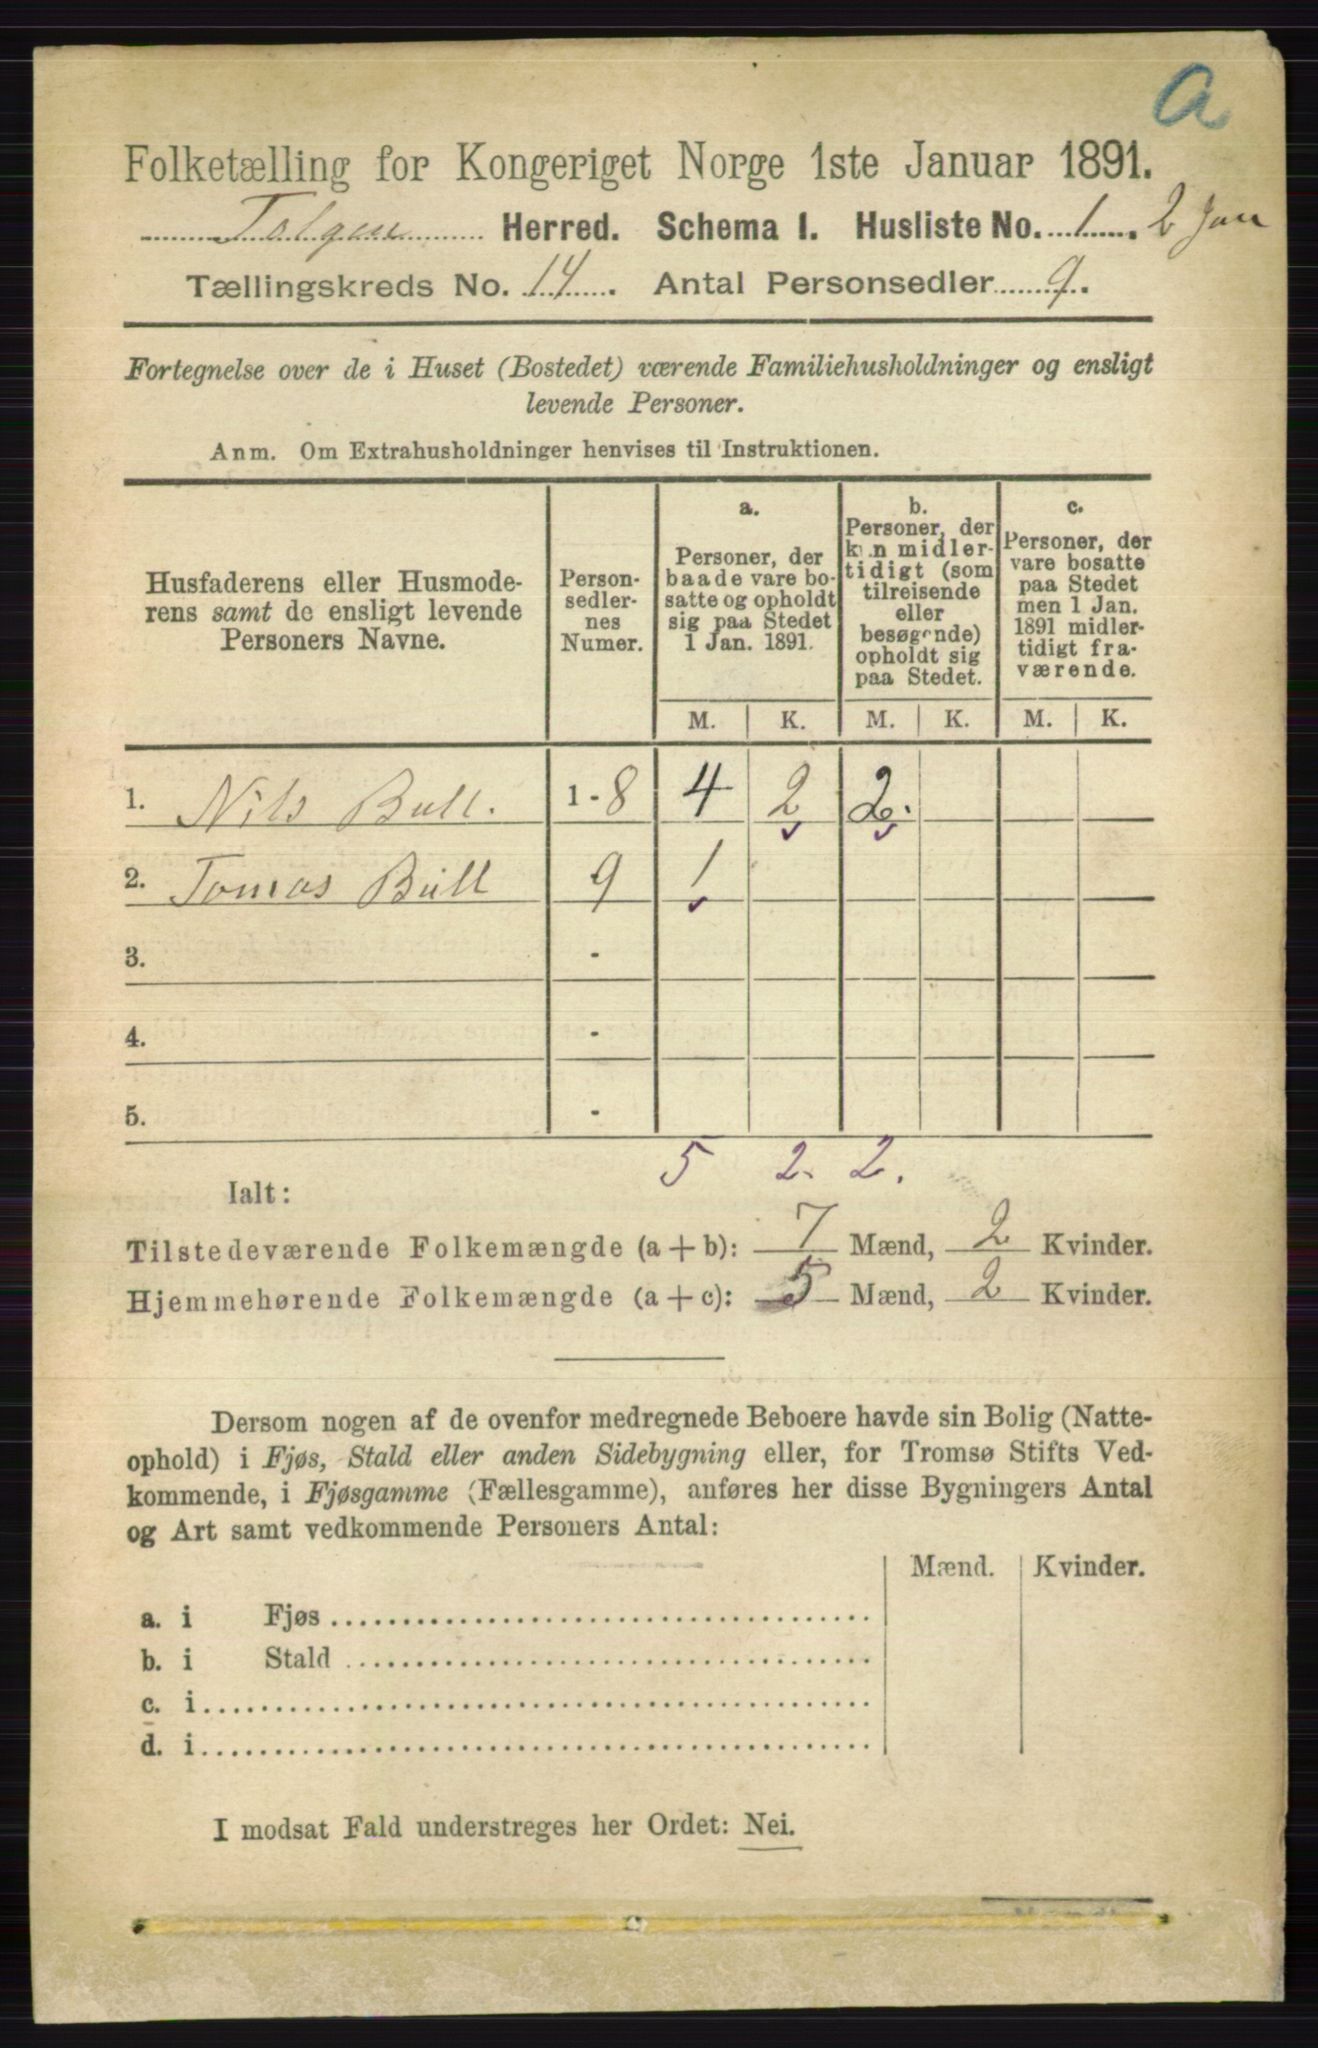 a
Folketælling for Kongeriget Norge 1ste Januar 1891.
Tolgen Herred. Schema I. Husliste No. 1. 2 Jan
Tællingskreds No. 14. Antal Personsedler 9.
Fortegnelse over de i Huset (Bostedet) værende Familiehusholdninger og ensligt
levende Personer.
Anm. Om Extrahusholdninger henvises til Instruktionen.
Husfaderens eller Husmode-
rens samt de ensligt levende
Personers Navne.
Person-
sedler-
nes
Numer.
a.
Personer, der
baade vare bo-
satte og opholdt
sig paa Stedet
1 Jan. 1891.
b.
Personer, der
kun midler-
tidigt (som
tilreisende
eller
besøgende)
opholdt sig
paa Stedet.
c.
Personer, der
vare bosatte
paa Stedet
men 1 Jan.
1891 midler-
tidigt fra-
værende.
M. K. M. K. M. K.
1. Nils Bull. 1-8 4 2 2.
2. Tomas Bull 9 1
3. -
4. -
5. -
5 2. 2.
Ialt:
Tilstedeværende Folkemængde (a + b): 7 Mænd, 2 Kvinder.
Hjemmehørende Folkemængde (a + c): 5 Mænd, 2 Kvinder.
Dersom nogen af de ovenfor medregnede Beboere havde sin Bolig (Natte-
ophold) i Fjøs, Stald eller anden Sidebygning eller, for Tromsø Stifts Ved-
kommende, i Fjøsgamme (Fællesgamme), anføres her disse Bygningers Antal
og Art samt vedkommende Personers Antal:
Mænd. Kvinder.
a. i Fjøs
b. i Stald
c. i
d. i
I modsat Fald understreges her Ordet: Nei.